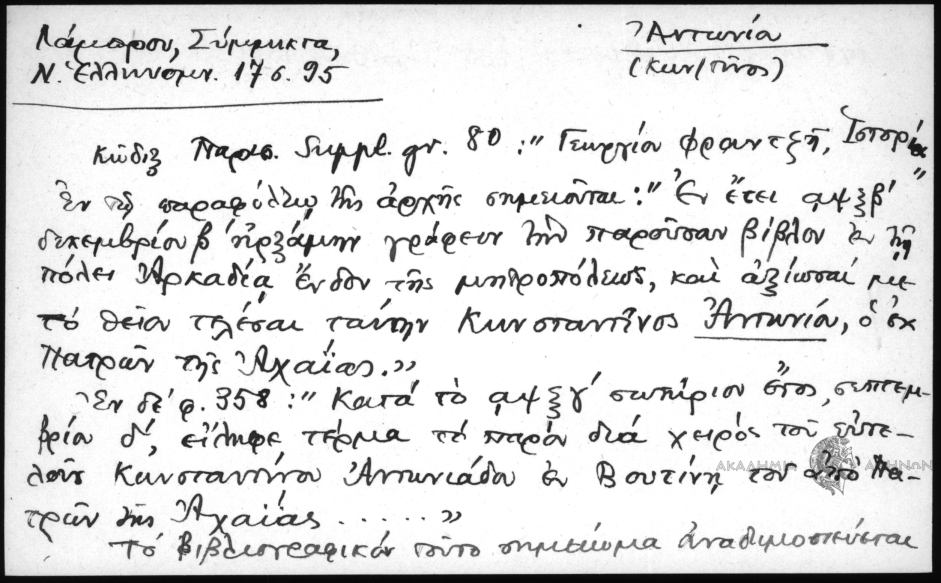 Λάμπρου, Σύμμικτα,
Ν. Ἑλληνομν. 17 σ. 95
Ἀντωνία
(Κων/τῖνος)
Κῶδιξ Παρισ. Suppl. gr. 80 : " Γεωργίου Φραντζῆ, Ἱστορία "
Ἐν τῷ παραφύλλῳ τῆς ἀρχῆς σημειοῦται : " Ἐν ἔτει αψξβ΄
δεκεμβρίου β΄ ἠρξάμην γράφειν τὴν παροῦσαν βίβλον ἐν τῇ
πόλει Ἀρκαδίᾳ ἔνδον τῆς μητροπόλεως, καὶ ἀξίωσαί με
τὸ θεῖον τελέσαι ταύτην Κωνσταντῖνος Ἀντωνία, ὁ ἐκ
Πατρῶν τῆς Ἀχαΐας.»
Ἐν δὲ φ. 358 : " Κατὰ τὸ αψξγ΄ σωτήριον ἔτος, σεπτεμ-
βρίου δ΄, εἴληφε τέρμα τὸ παρὸν διὰ χειρὸς τοῦ εὐτε-
λοῦς Κωνσταντίνου Ἀντωνιάδου ἐν Βουτίνῃ τοῦ ἀπὸ Πα-
τρῶν τῆς Ἀχαΐας . . . . . . »
Τὸ βιβλιογραφικὸν τοῦτο σημείωμα ἀναδημοσιεύεται
ΑΚΑΔΗΜΙΑ ΑΘΗΝΩΝ